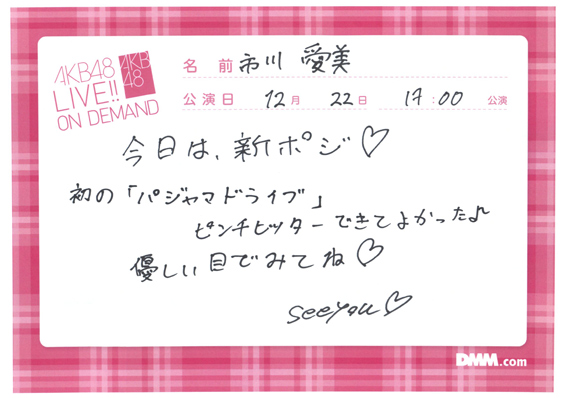 AKB48
LIVE!!
ON DEMAND
AKB
48
名前 市川 愛美
公演日 12月 22日 17:00 公演
今日は、新ポジ♡
初の「パジャマドライブ」
ピンチヒッターできてよかった♪
優しい目でみてね♡
seeyou♡
DMM.com